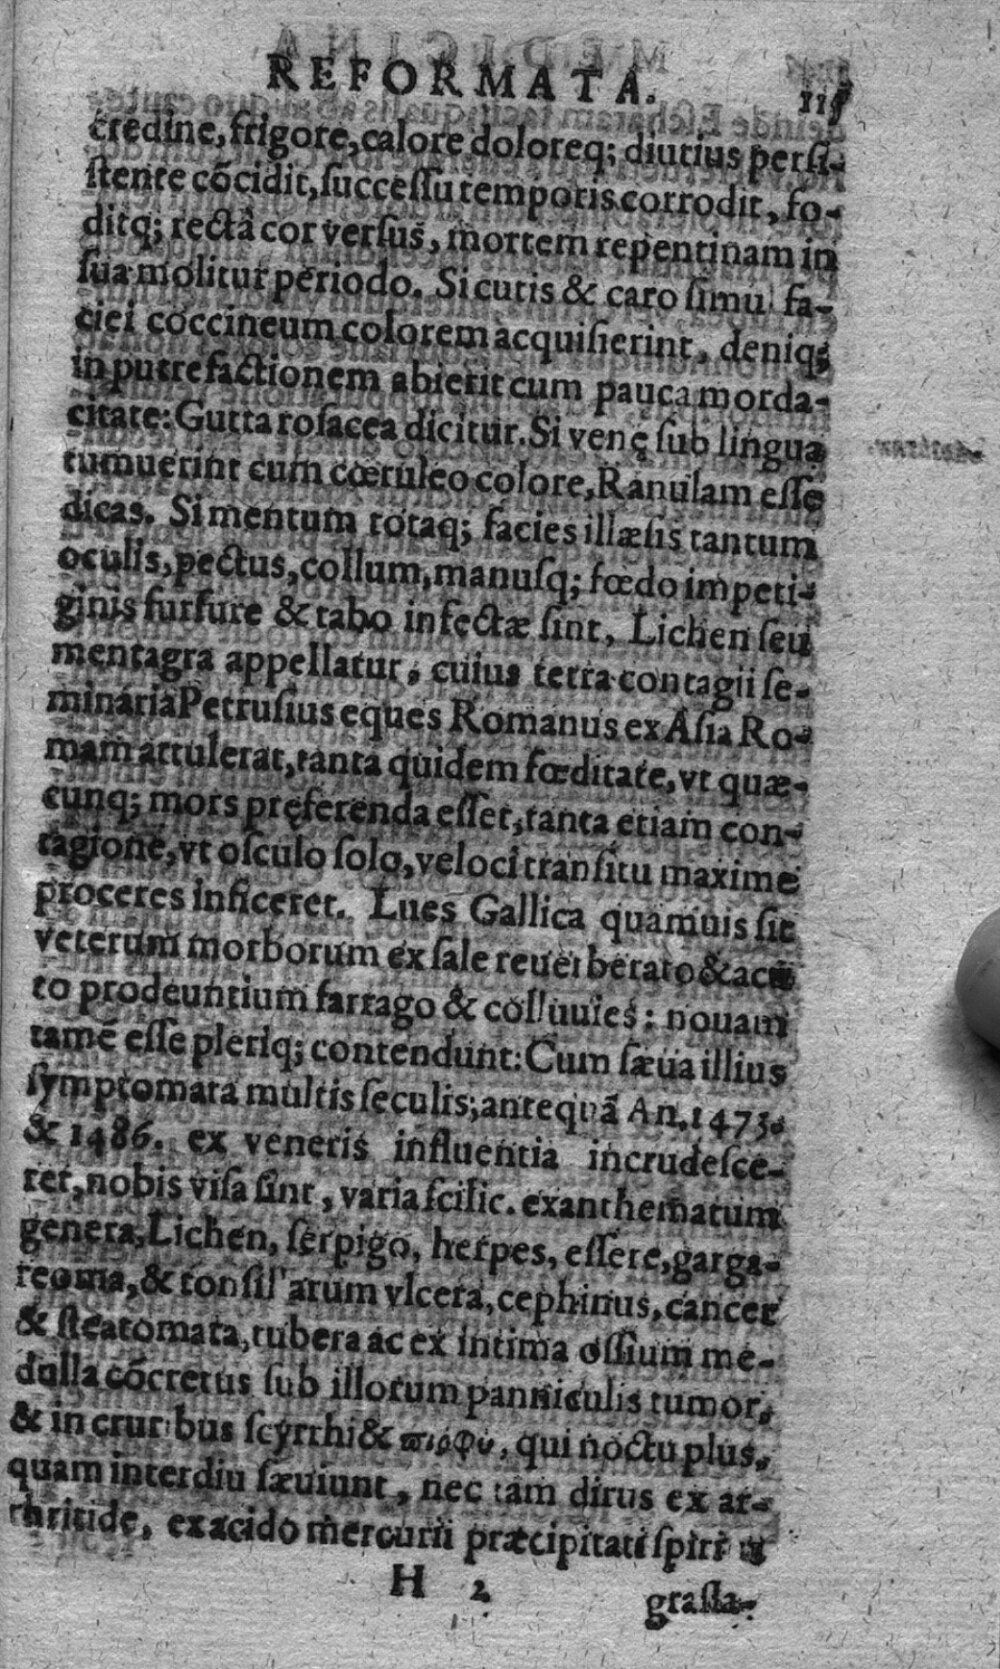 REFORMATA. 115
credine, frigore, calore doloreq; diutius persi-
ſtente cõcidit, ſucceſſu temporis corrodit, fo-
ditq; rectâ cor verſus, mortem repentinam in
ſua molitur periodo. Si cutis & caro ſimul fa-
ciei coccineum colorem acquiſierint, deniq;
in putrefactionem abierit cum pauca morda-
citate: Gutta roſacea dicitur. Si venę ſub lingua
tumuerint cum cœruleo colore, Ranulam eſſe
dicas. Si mentum totaq; facies illæſis tantum
oculis, pectus, collum, manuſq; fœdo impeti-
ginis furfure & tabo infectæ ſint, Lichen ſeu
mentagra appellatur, cuius tetra contagii ſe-
minaria Petruſius eques Romanus ex Aſia Ro-
mam attulerat, tanta quidem fœditate, vt quæ-
cunq; mors pręferenda eſſet, tanta etiam con-
tagione, vt oſculo ſolo, veloci tranſitu maxime
proceres inficeret. Lues Gallica quamuis ſit
veterum morborum ex ſale reuerberato & acu-
to prodeuntium farrago & colluuies: nouam
tamẽ eſſe pleriq; contendunt: Cum ſæua illius
ſymptomata multis ſeculis; antequã An. 1473.
& 1486. ex veneris influentia incrudeſce-
ret, nobis viſa ſint, varia ſcilic. exanthematum
genera, Lichen, ſerpigo, herpes, eſſere, garga-
reoma, & tonſillarum vlcera, cephirius, cancer
& ſteatomata, tubera ac ex intima oſſium me-
dulla cõcretus ſub illorum panniculis tumor,
& in cruribus ſcyrrhi & qui noctu plus,
quam interdiu ſæuiunt, nec tam dirus ex ar-
thritide, ex acido mercurii præcipitati ſpiritu
H 2 graſſa-